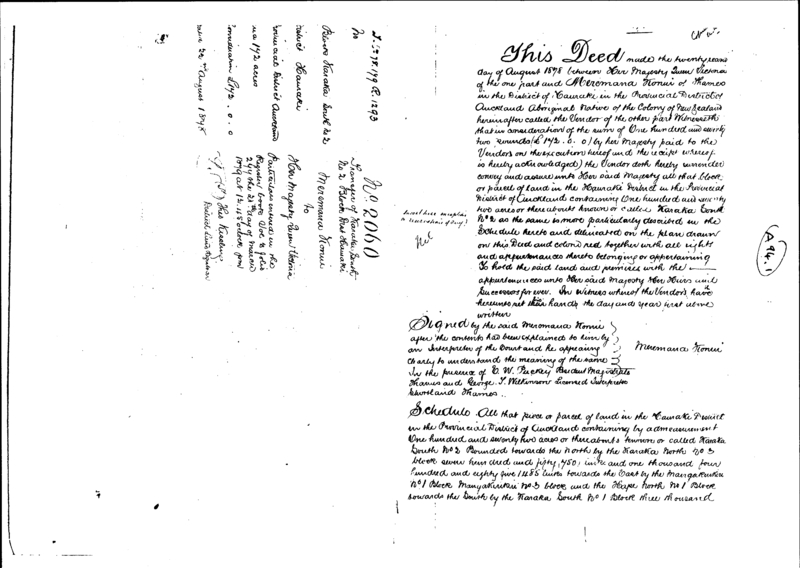 This Deed made the twenty second
day of August 1878 between Her Majesty Queen Victoria
of the one part and Meremana Konui of Thames
in the District of Hauraki in the Provincial District of
Auckland Aboriginal Native of the Colony of New Zealand
hereinafter called the Vendor of the other part Witnesseth
that in consideration of the sum of One hundred and seventy
two pounds (£172.0.0) by her Majesty paid to the
Vendors on the execution hereof and the receipt whereof
is hereby acknowledged) the Vendor doth hereby surrender
convey and assure unto Her said Majesty all that block
or parcel of land in the Hauraki District in the Provincial
District of Auckland containing One hundred and seventy
two acres or thereabouts known or called Karaka South
No 2 as the same is more particularly described in the
Schedule hereto and delineated on the plan drawn
on this Deed and colored red together with all rights
and appurtenances thereto belonging or appertaining
To hold the said land and premises with the
appurtenances unto Her said Majesty Her Heirs and
Successors for ever. In Witness whereof the Vendors have
hereunto set their hands the day and year first above
written
Signed by the said Meremana Konui
after the contents had been explained to him by
an Interpreter of the Court and he appearing
clearly to understand the meaning of the same
In the presence of E. W. Puckey Resident Magistrate
Thames and George T. Wilkinson Licensed Interpreter
Shortland Thames.
Meremana Konui
Schedule. All that piece or parcel of land in the Hauraki District
in the Provincial District of Auckland containing by admeasurement
One hundred and seventy two acres or thereabouts known or called Karaka
South No 2 Bounded towards the North by the Karaka North No 3
block seven hundred and fifty (750) links and one thousand four
hundred and eighty five 1485 links towards the East by the
No 1 Block No 3 block and the Hape North No 1 Block
towards the South by the Karaka South No 1 Block three thousand
A 94.1
No 2060
Transfer of Karaka South
No 2 Block Hauraki
Meremana Konui
to
Her Majesty Queen Victoria
Particulars entered in the
Register book Vol folio
244 the day of March
1879 at 12.45 o'clock pm
District Land Registrar
Block Karaka South No 2
District Hauraki
Provincial District Auckland
Area 172 acres
Consideration £172.0.0
Date 22nd August 1878